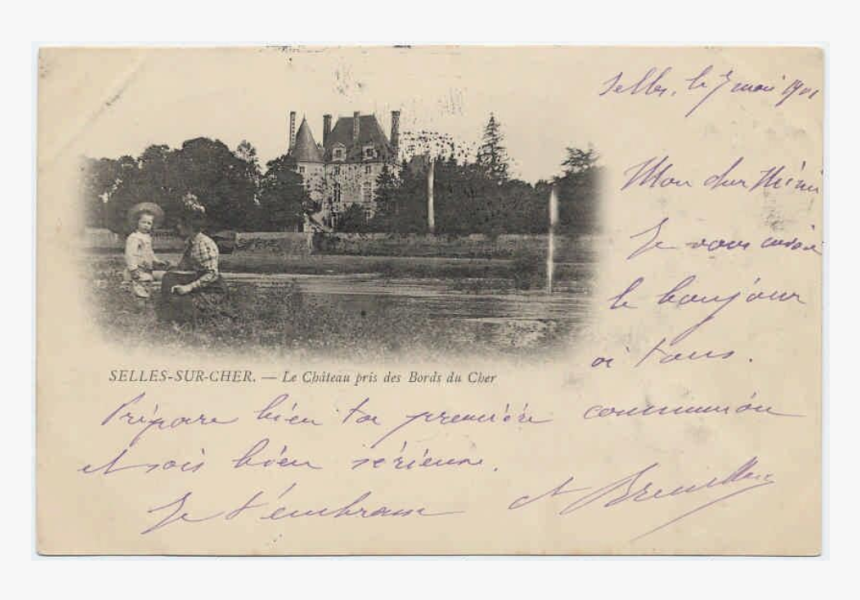 Selles, le 7 mai 1901
Mon cher Mimi
Je vous envoie
le bonjour
à tous.
SELLES-SUR-CHER. — Le Château pris des Bords du Cher
Prépare bien ta première communion
et sois bien sérieuse.
Je t'embrasse